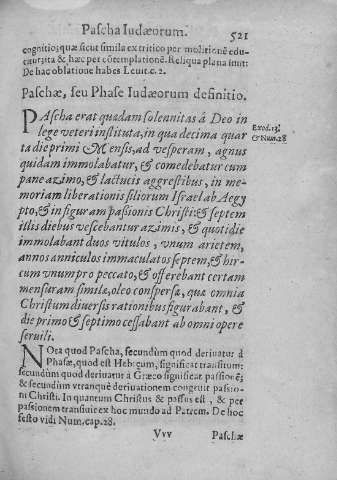 Pascha Iudæorum. 521
cognitio; quæ sicut simila ex tritico per molitionē edu-
citur, ita & hæc per cōtemplationē. Reliqua plana sunt:
De hac oblatione habes Leuit. c. 2.
Paschæ, seu Phase Iudæorum definitio.
PAscha erat quædam solennitas à Deo in
lege veteri instituta, in qua decima quar
ta die primi Mensis, ad vesperam, agnus
quidam immolabatur, & comedebatur cum
pane azimo, & lactucis aggrestibus, in me-
moriam liberationis filiorum Israel ab Aegy
pto, & in figuram passionis Christi: & septem
illis diebus vescebantur azimis, & quotidie
immolabant duos vitulos, vnum arietem,
annos anniculos immaculatos septem, & hir-
cum vnum pro peccato, & offerebant certam
mensuram similæ, oleo conspersæ, quæ omnia
Christum diuersis rationibus figurabant, &
die primo & septimo cessabant ab omni opere
seruili.
Exod. 13.
& Num. 28
NOta quod Pascha, secundùm quod deriuatur à
Phasæ, quod est Hebræum, significat transitum:
secundùm quod deriuatur à Græco significat passionē;
& secundùm vtranquè deriuationem congruit passio-
ni Christi. In quantum Christus & passus est, & per
passionem transiuit ex hoc mundo ad Patrem. De hoc
festo vidi Num. cap. 28.
Vvv Paschæ